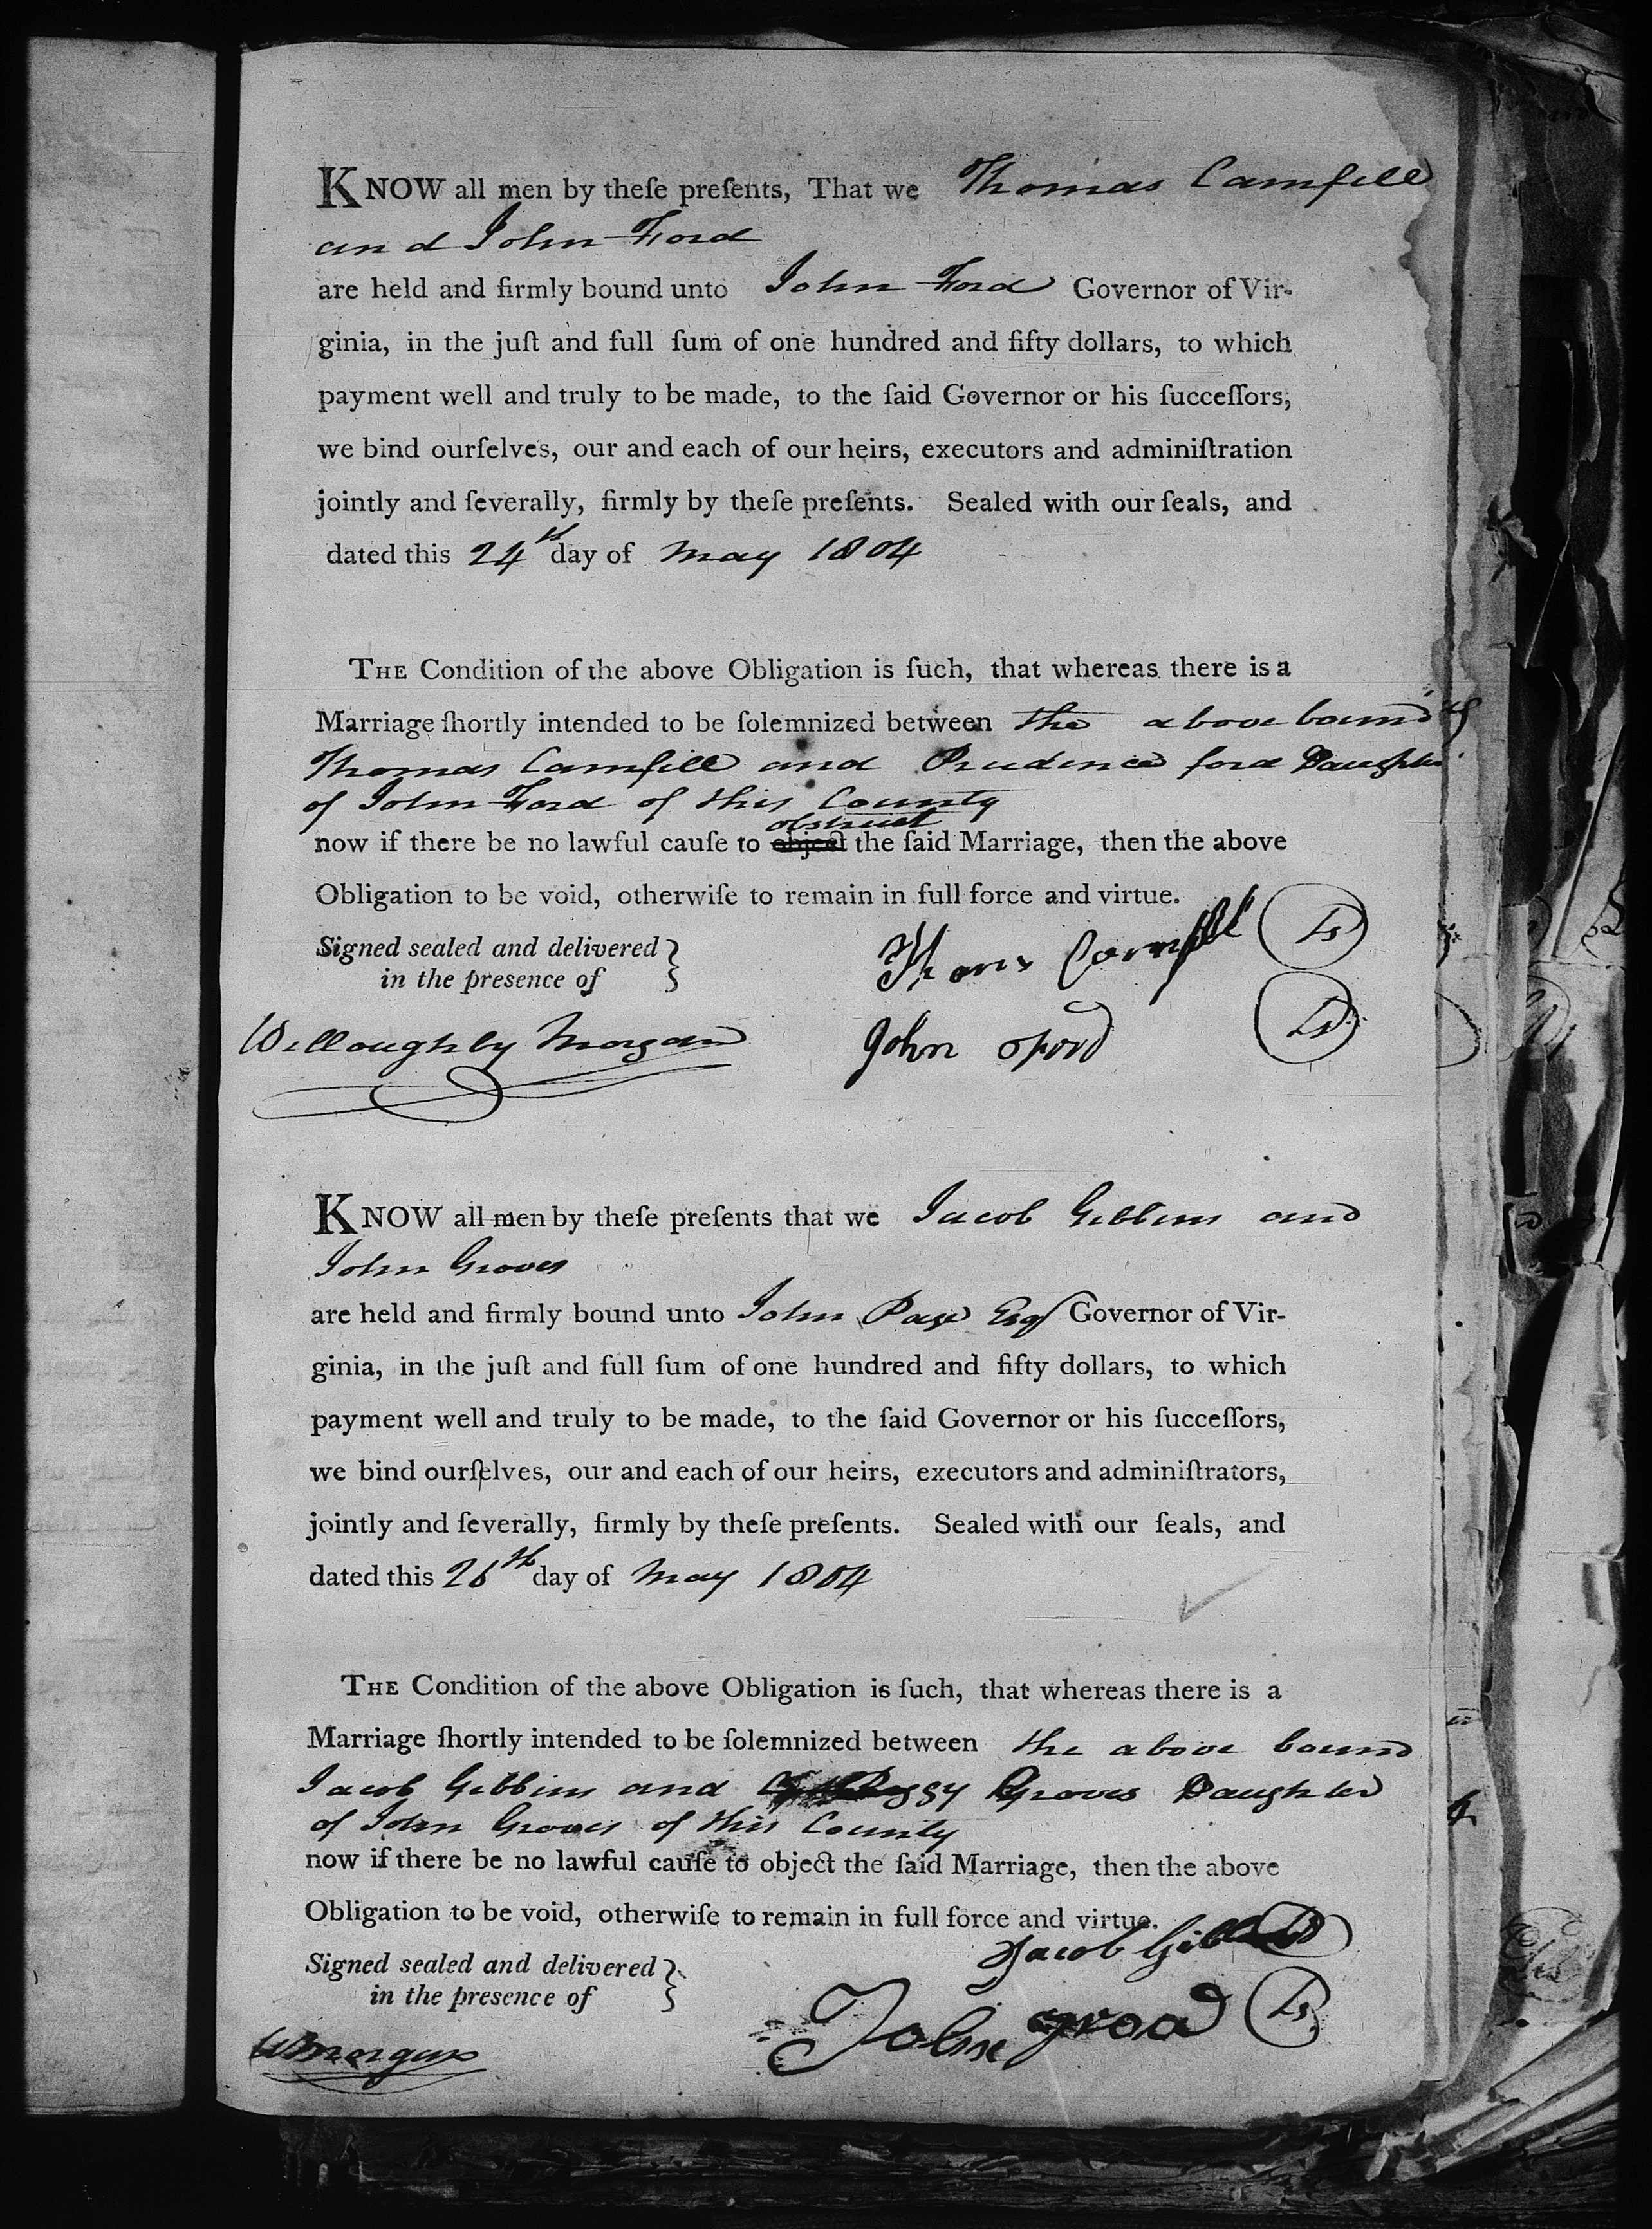 KNOW all men by theſe preſents, That we Thomas Camfill
and John Ford
are held and firmly bound unto John Ford Governor of Vir-
ginia, in the juſt and full ſum of one hundred and fifty dollars, to which
payment well and truly to be made, to the ſaid Governor or his ſucceſſors,
we bind ourſelves, our and each of our heirs, executors and adminiſtration
jointly and ſeverally, firmly by theſe preſents. Sealed with our ſeals, and
dated this 24th day of May 1804
THE Condition of the above Obligation is ſuch, that whereas there is a
Marriage ſhortly intended to be ſolemnized between the above bound
Thomas Camfill and Prudence ford Daughter
of John Ford of this County
obstruct
now if there be no lawful cauſe to object the ſaid Marriage, then the above
Obligation to be void, otherwiſe to remain in full force and virtue.
Signed sealed and delivered }
in the presence of
Thoms Camfill Ls
Willoughby Morgan
John Ford Ls
KNOW all men by theſe preſents that we Jacob Gibbins and
John Groves
are held and firmly bound unto John Page Esqr Governor of Vir-
ginia, in the juſt and full ſum of one hundred and fifty dollars, to which
payment well and truly to be made, to the ſaid Governor or his ſucceſſors,
we bind ourſelves, our and each of our heirs, executors and adminiſtrators,
jointly and ſeverally, firmly by theſe preſents. Sealed with our ſeals, and
dated this 26th day of May 1804
THE Condition of the above Obligation is ſuch, that whereas there is a
Marriage ſhortly intended to be ſolemnized between the above bound
Jacob Gibbins and Peggy Groves Daughter
of John Groves of this County
now if there be no lawful cauſe to object the ſaid Marriage, then the above
Obligation to be void, otherwiſe to remain in full force and virtue.
Signed sealed and delivered }
in the presence of
Jacob Ls
John Ls
WMorgan